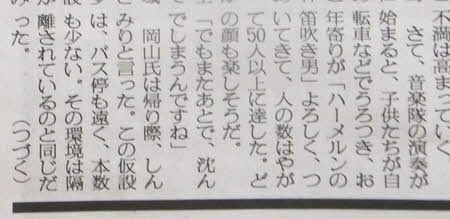 不満は高まっていく
さて、音楽隊の演奏が
始まると、子供たちが自
転車などでうろつき、お
年寄りが「ハーメルンの
笛吹き男」よろしく、つ
いてきて、人の数はやが
て50人以上に達した。ど
の顔も楽しそうだ。
「でもまたあとで、沈ん
でしまうんですね」
岡山氏は帰り際、しん
みりと言った。この仮設
は、バス停も遠く、本数
も少ない。その環境は隔
離されているのと同じだ
った。　（つづく）